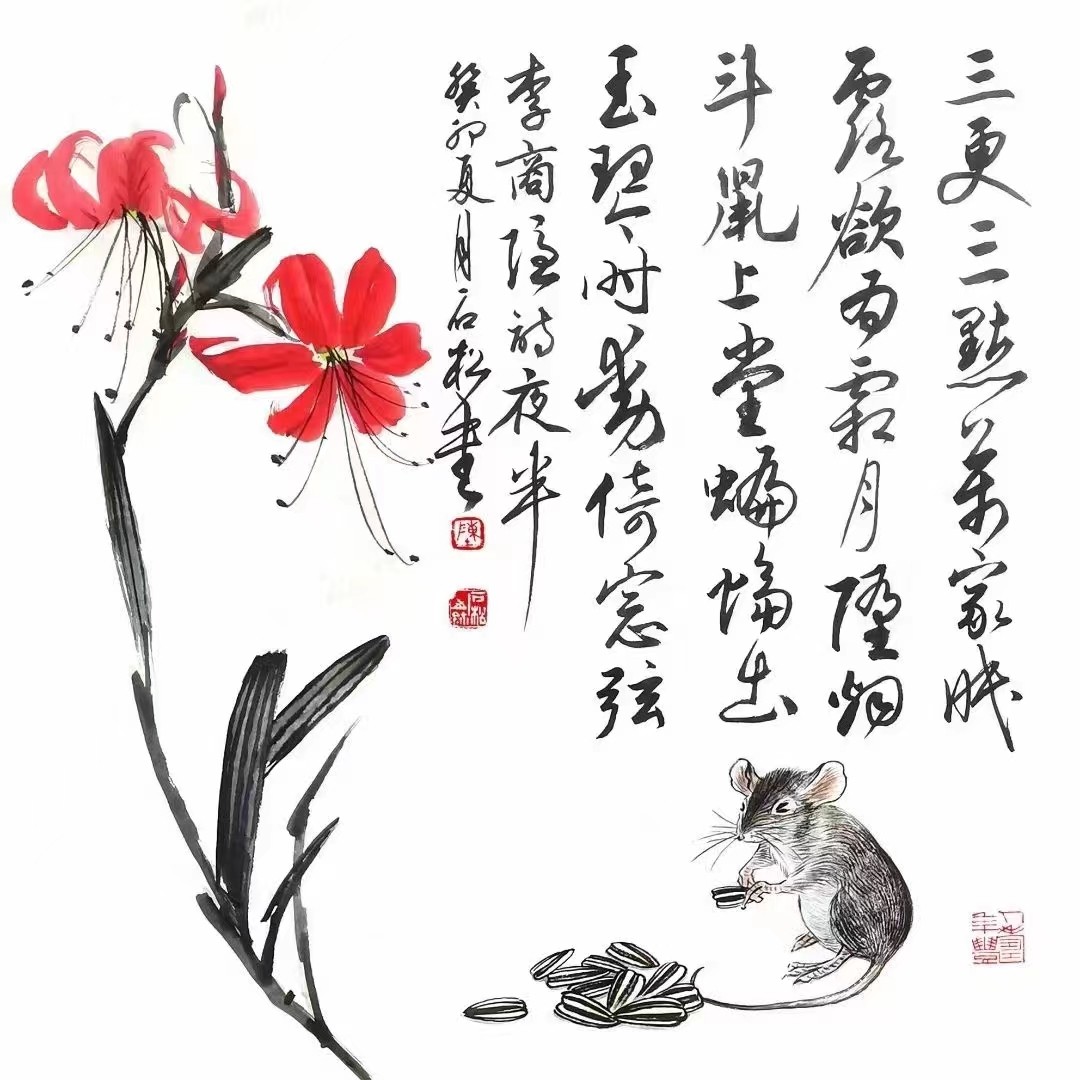 三更三點萬家眠
露欲為霜月墮烟
斗鼠上堂蝙蝠出
玉琴时動倚窗弦
李商隱詩夜半
癸卯夏月石松書
陳
石松
人壽年豐